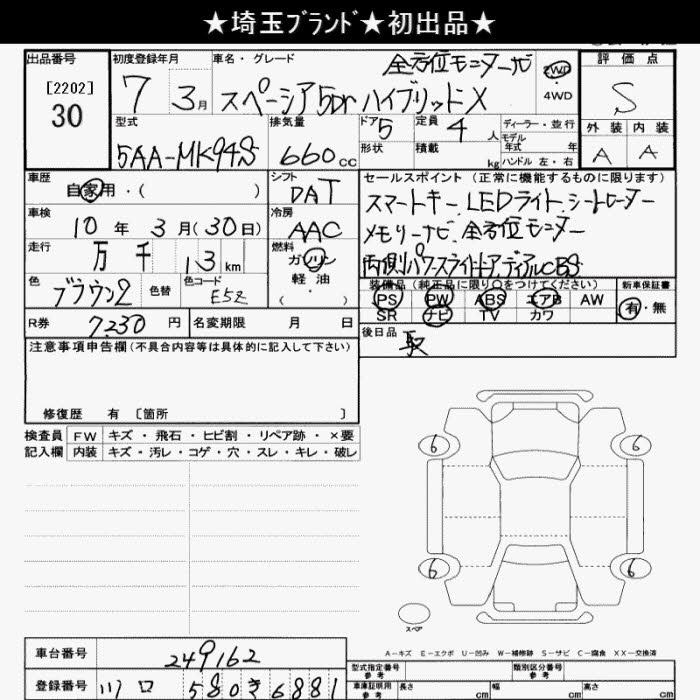 ★埼玉ブランド★初出品★
出品番号 初度登録年月 車名・グレード 全方位モニターナビ 2WD 評価点
[2202] 7 3月 スペーシア5Dr ハイブリッドX 4WD S
30
型式 排気量 ドア 定員 ディーラー・並行 外装 内装
5AA-MK94S 660cc 5 4人 モデル年式 年 A A
形状 積載 kg ハンドル 左・右
車歴 シフト セールスポイント(正常に機能するものに限ります)
自家用・( ) DAT スマートキー LEDライト シートヒーター
車検 冷房 メモリーナビ 全方位モニター
10年3月(30日) AAC 両側パワースライドドア デュアルCBS
走行 万 千 13km 燃料 ガソリン
軽油
( 装備品(純正品に限り○をつけてください) 新車保証書
色 ブラウン2 色替 色コード E5Z PS PW ABS エアB AW 有・無
SR ナビ TV カワ
R券 7230円 名変期限 月 日 後日品 取
注意事項申告欄(不具合内容等は具体的に記入して下さい)
修復歴 有 [箇所 ]
検査員 FW キズ・飛石・ヒビ割・リペア跡・×要
記入欄 内装 キズ・汚レ・コゲ・穴・スレ・キレ・破レ
6 6
6 6
スペア
A-キズ E-エクボ U-凹み W-補修跡 S-サビ C-腐食 XX-交換済
車台番号 249162 型式指定番号 参考 類別区分番号 参考
登録番号 川口 580 き 6881 車庫証明用 参考 長さ cm 幅 cm 高さ cm